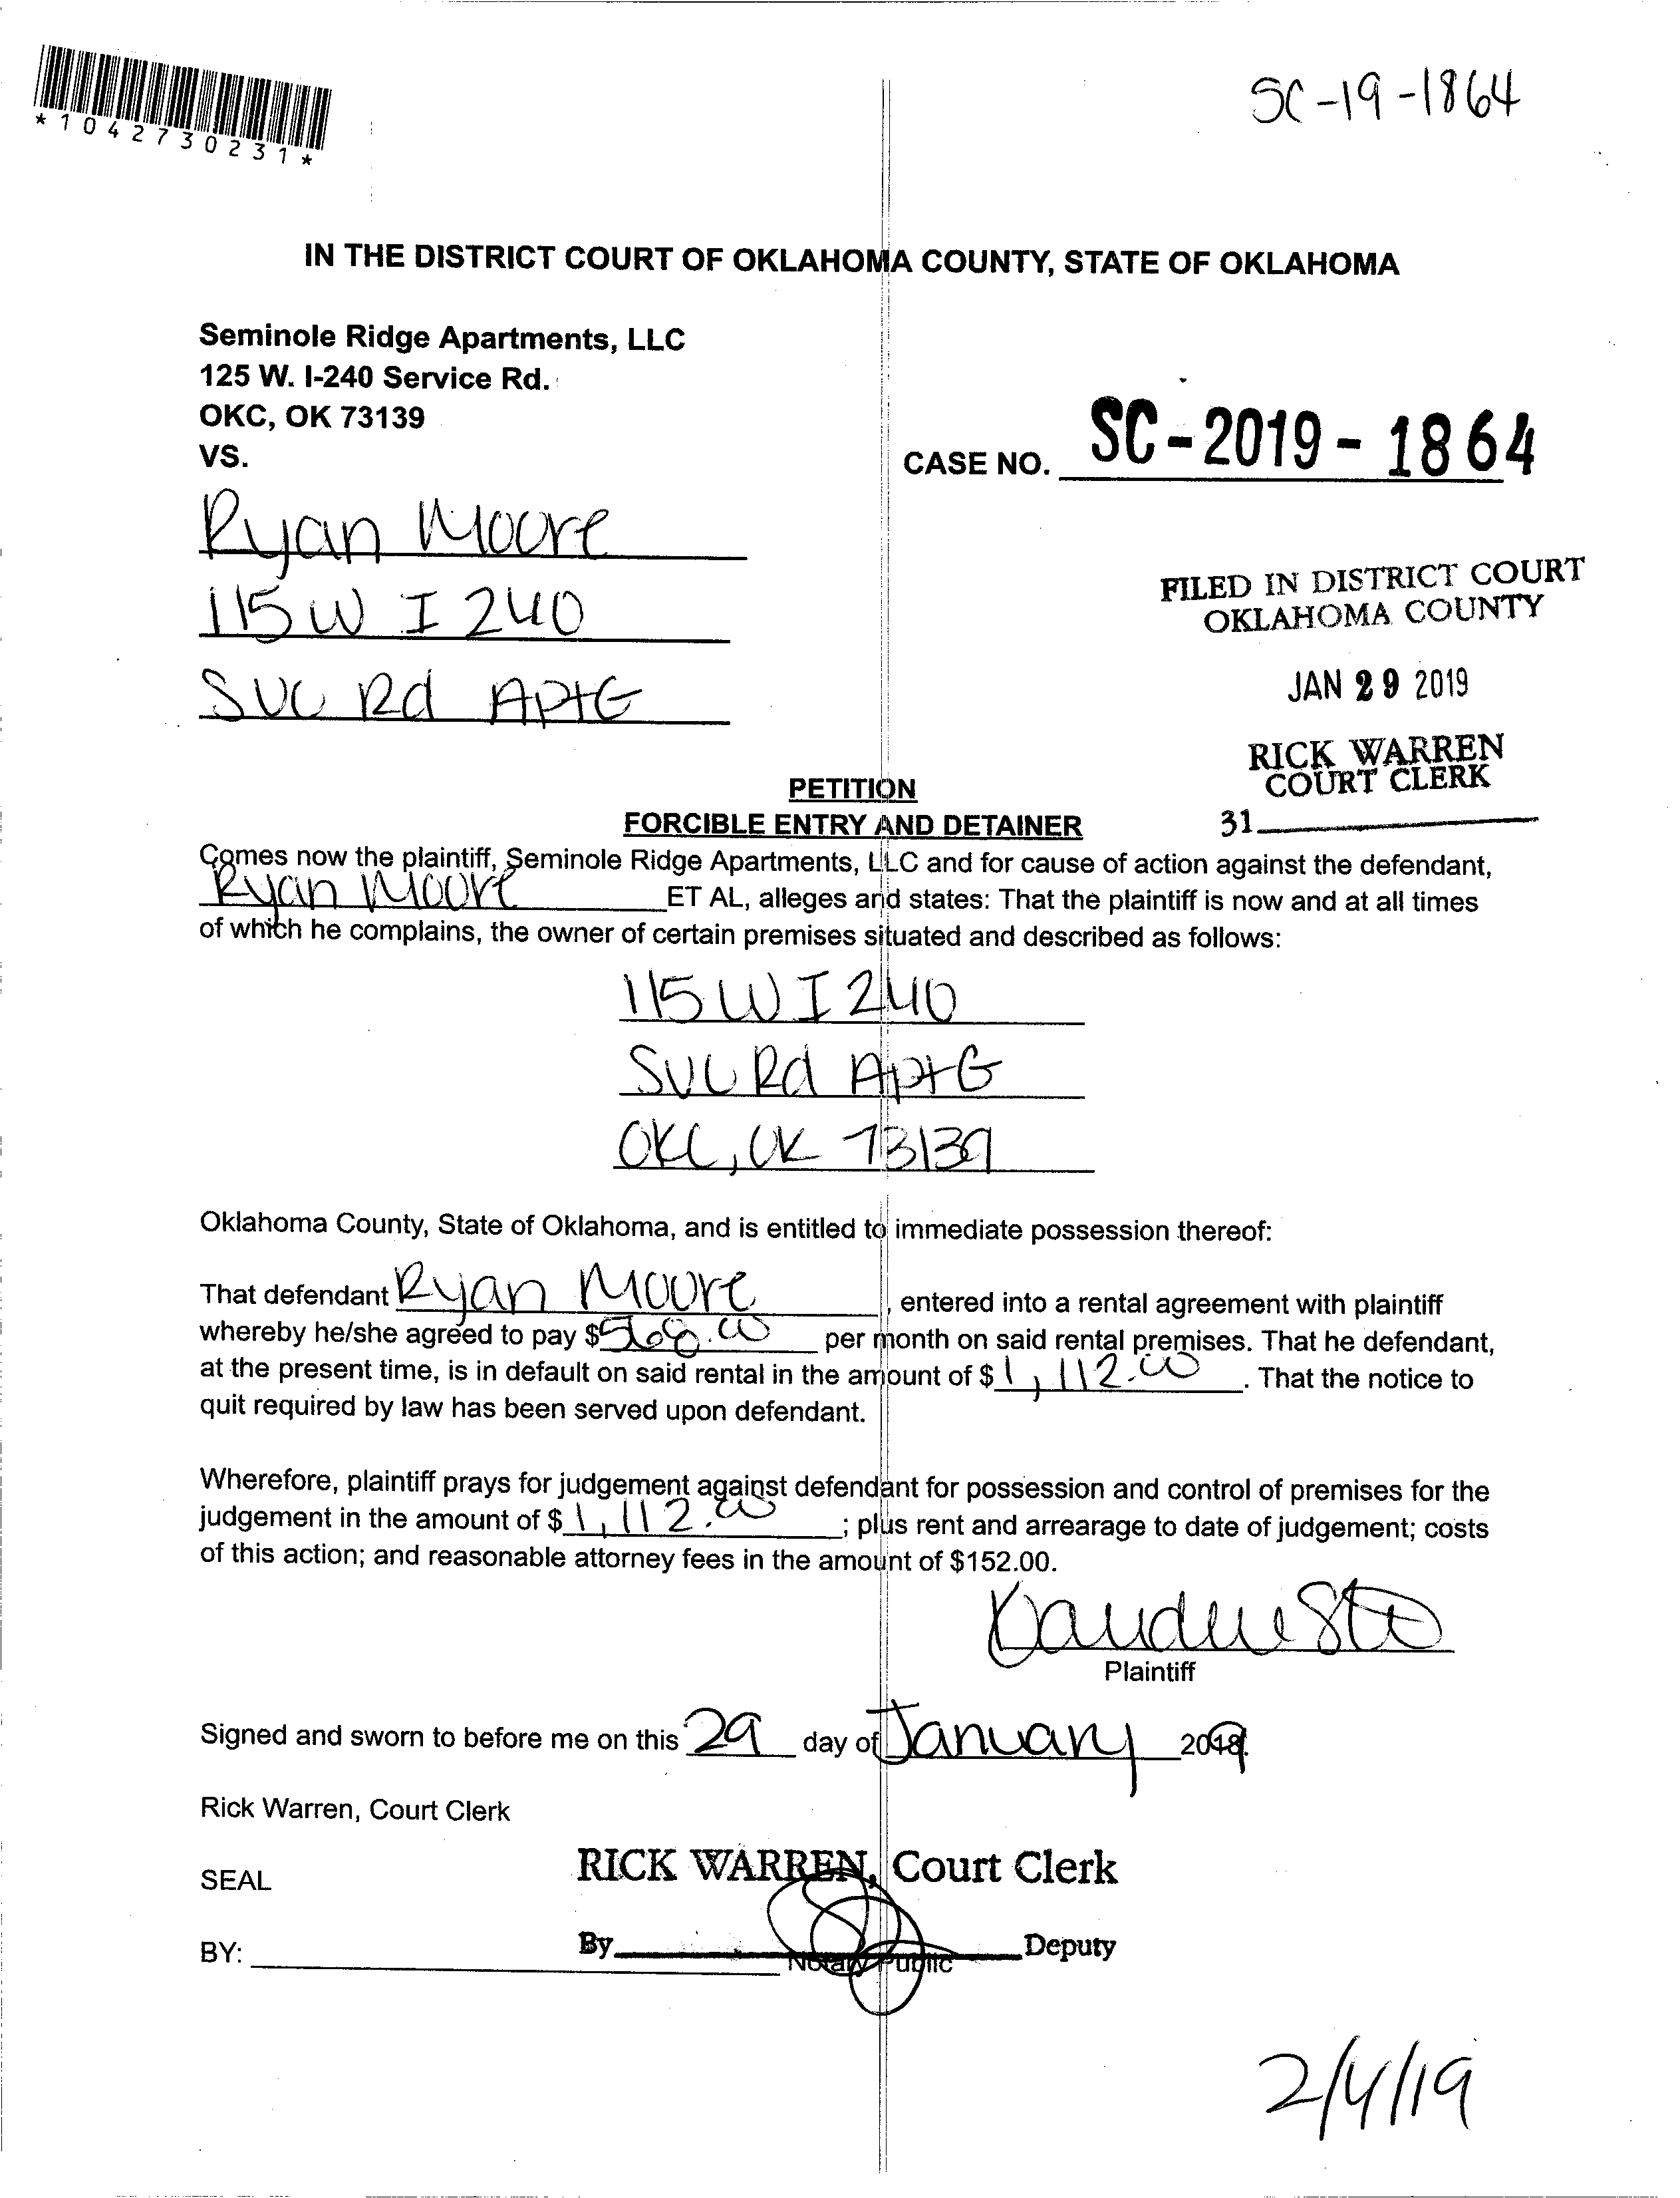 *1042730231*
SC-19-1864
IN THE DISTRICT COURT OF OKLAHOMA COUNTY, STATE OF OKLAHOMA
Seminole Ridge Apartments, LLC
125 W. I-240 Service Rd.
OKC, OK 73139
VS.
CASE NO. SC-2019-1864
Ryan Moore
115 W I 240
SVC Rd Apt G
FILED IN DISTRICT COURT
OKLAHOMA COUNTY
JAN 29 2019
RICK WARREN
COURT CLERK
31
PETITION
FORCIBLE ENTRY AND DETAINER
Comes now the plaintiff, Seminole Ridge Apartments, LLC and for cause of action against the defendant,
Ryan Moore ET AL, alleges and states: That the plaintiff is now and at all times
of which he complains, the owner of certain premises situated and described as follows:
115 W I 240
SVC Rd Apt G
OKC, OK 73139
Oklahoma County, State of Oklahoma, and is entitled to immediate possession thereof:
That defendant Ryan Moore, entered into a rental agreement with plaintiff
whereby he/she agreed to pay $568.00 per month on said rental premises. That he defendant,
at the present time, is in default on said rental in the amount of $1,112.00. That the notice to
quit required by law has been served upon defendant.
Wherefore, plaintiff prays for judgement against defendant for possession and control of premises for the
judgement in the amount of $1,112.00; plus rent and arrearage to date of judgement; costs
of this action; and reasonable attorney fees in the amount of $152.00.
Plaintiff
Signed and sworn to before me on this 29 day of January 2019.
Rick Warren, Court Clerk
RICK WARREN, Court Clerk
SEAL
BY: By Deputy
Notary Public
2/4/19